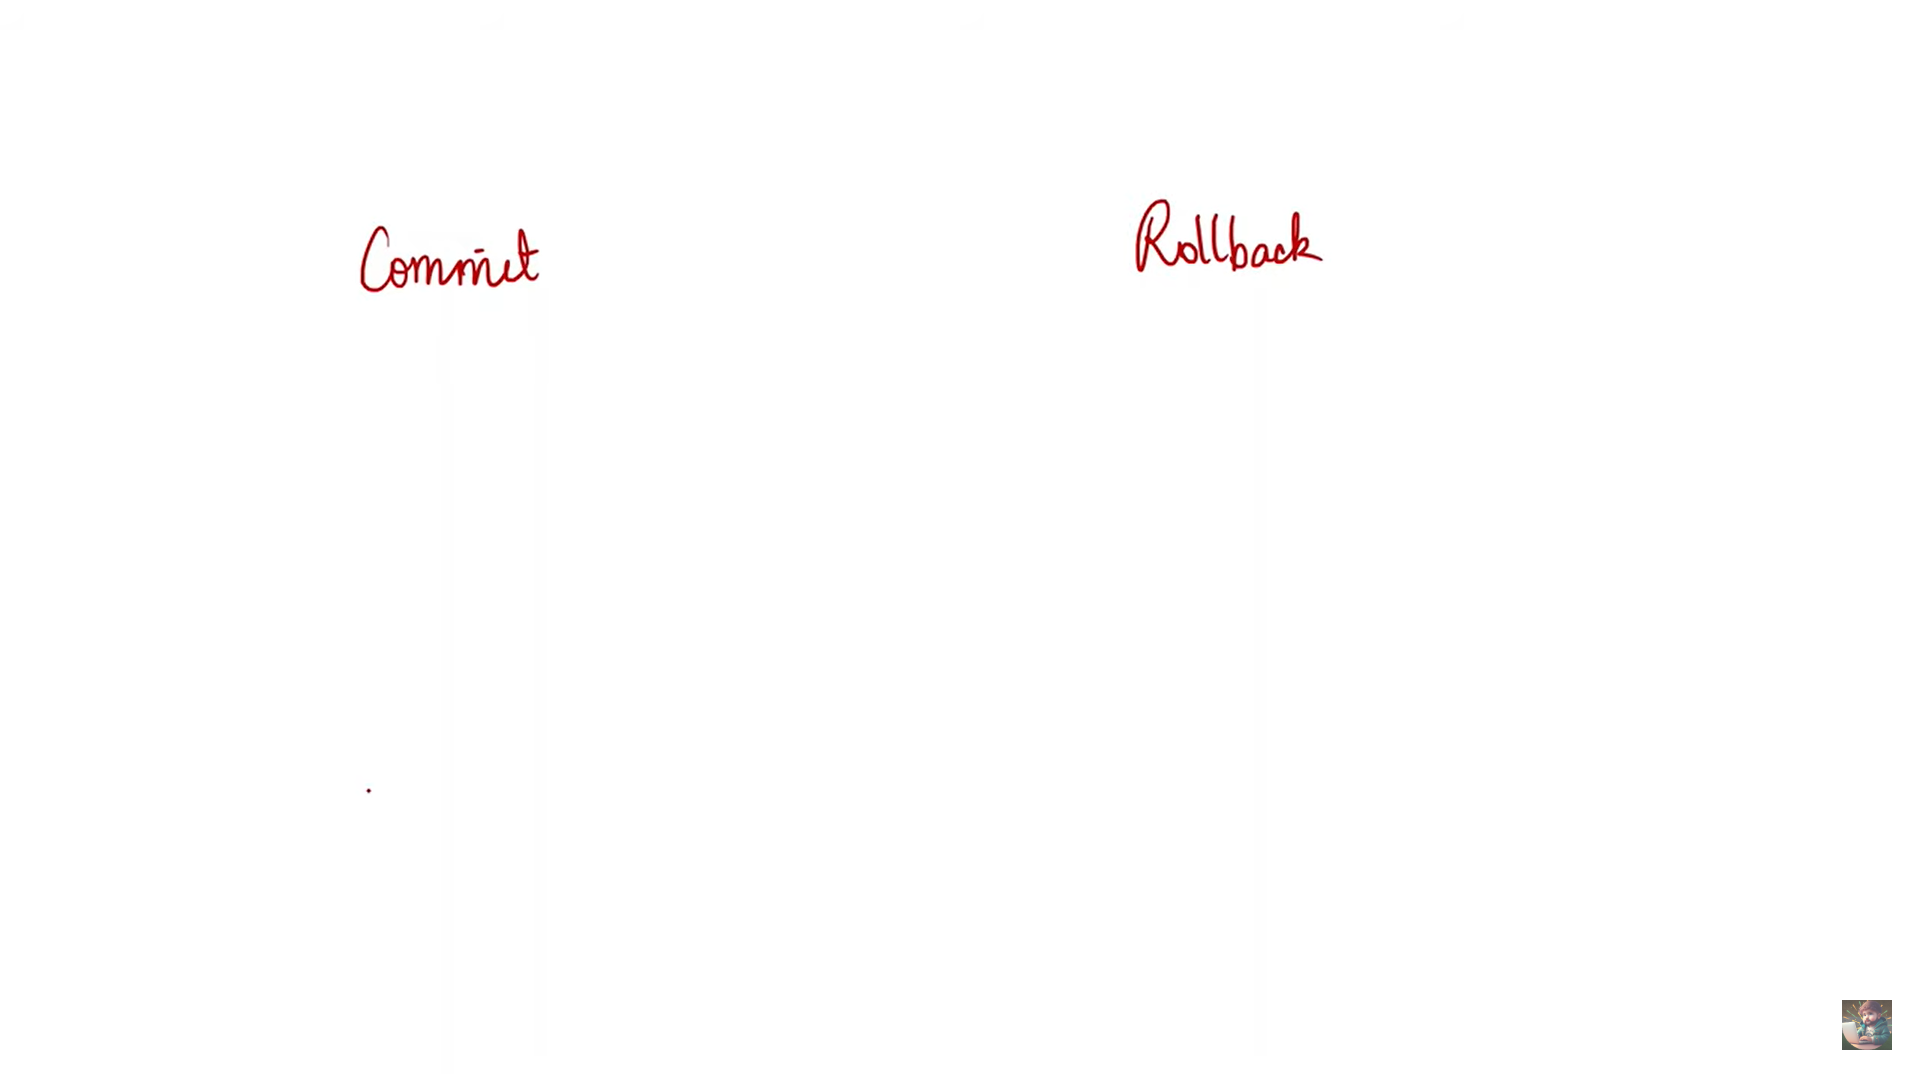 Commit
Rollback